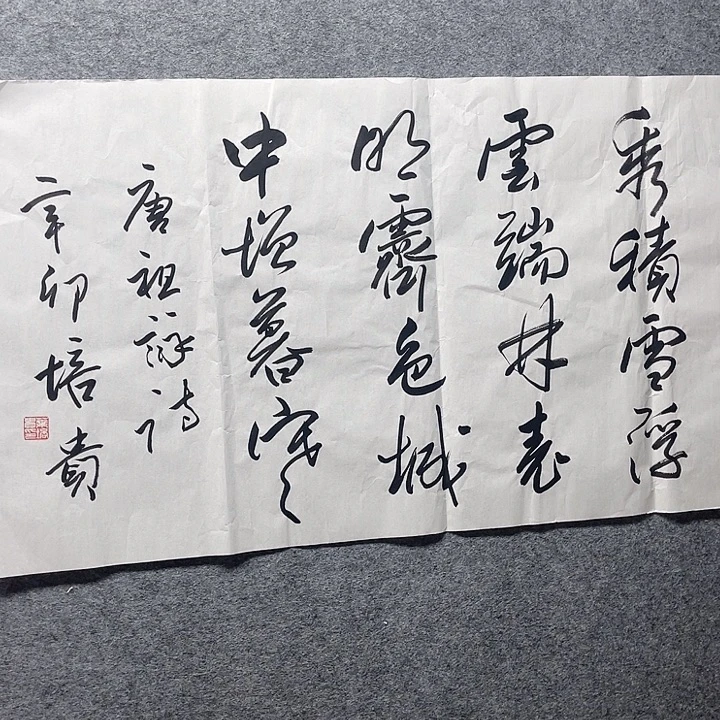 秀積雪浮
雲端林表
明霽色城
中增暮寒
唐祖詠詩
辛卯培貴